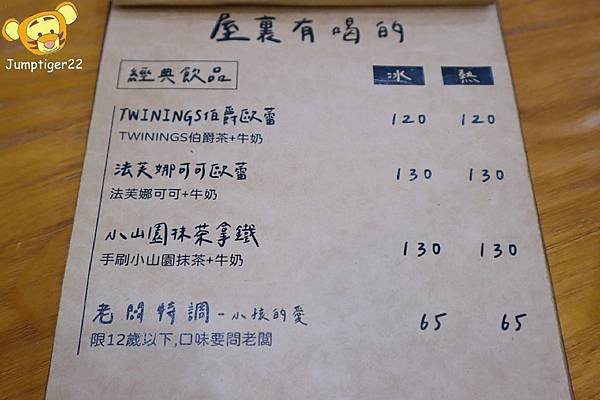 Jumptiger22
屋裏有喝的
經典飲品 冰 熱
TWININGS伯爵歐蕾 120 120
TWININGS伯爵茶+牛奶
法芙娜可可歐蕾 130 130
法芙娜可可+牛奶
小山園抹茶拿鐵 130 130
手刷小山園抹茶+牛奶
老闆特調-小孩的愛 65 65
限12歲以下,口味要問老闆